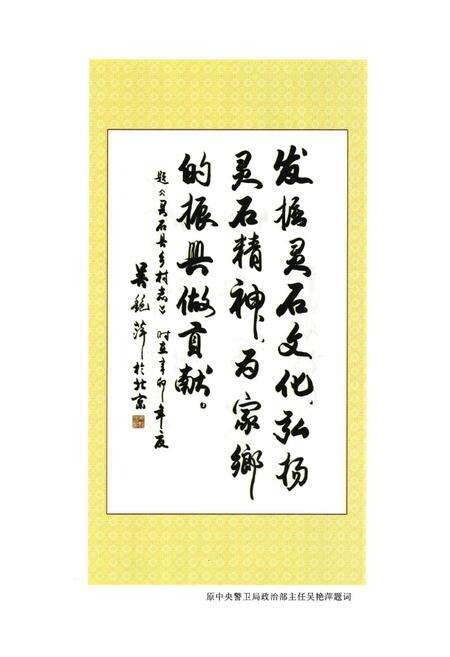 发掘灵石文化,弘扬
灵石精神,为家鄉
的振兴做贡献。
题《灵石县乡村志》时在辛卯年夏
吴艳萍於北京
原中央警卫局政治部主任吴艳萍题词